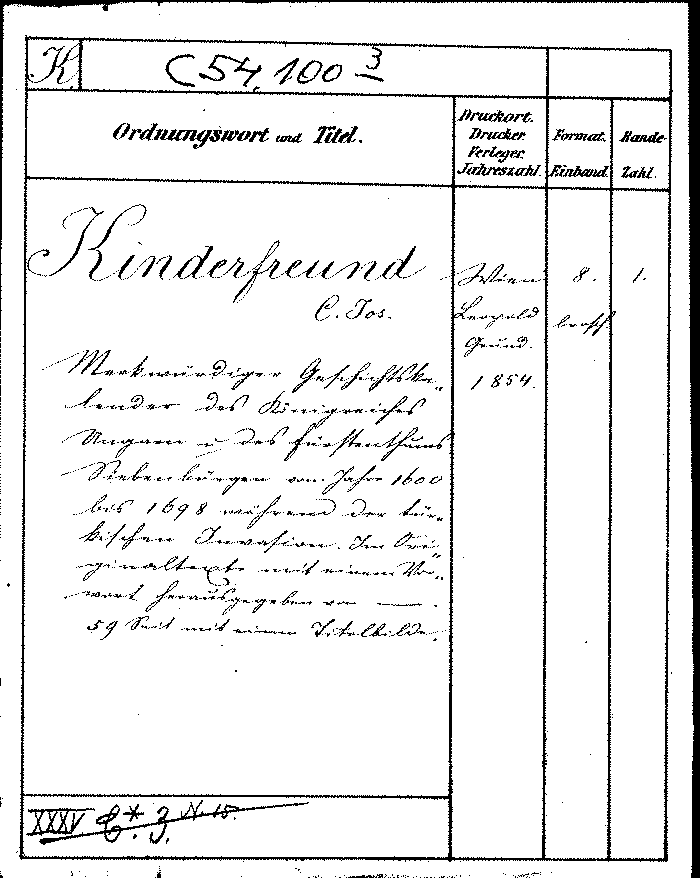 K.
C 54.100 3
Ordnungswort und Titel.
Druckort.
Drucker.
Verleger.
Jahreszahl.
Format.
Einband.
Bände
Zahl.
Kinderfreund
C. Jos.
Merkwürdiger Geschichtska-
lender des Königreiches
Ungarn u des Fürstenthums
Siebenbürgen vom Jahre 1600
bis 1698 während der tür-
kischen Invasion. Im Ori-
ginaltexte mit einem Vor-
wort herausgegeben von —.
59 Seit mit einem Titelbilde.
Wien
Leopold
Grund.
1854.
8.
brosch.
1.
XXXV E* 3. N. 15.